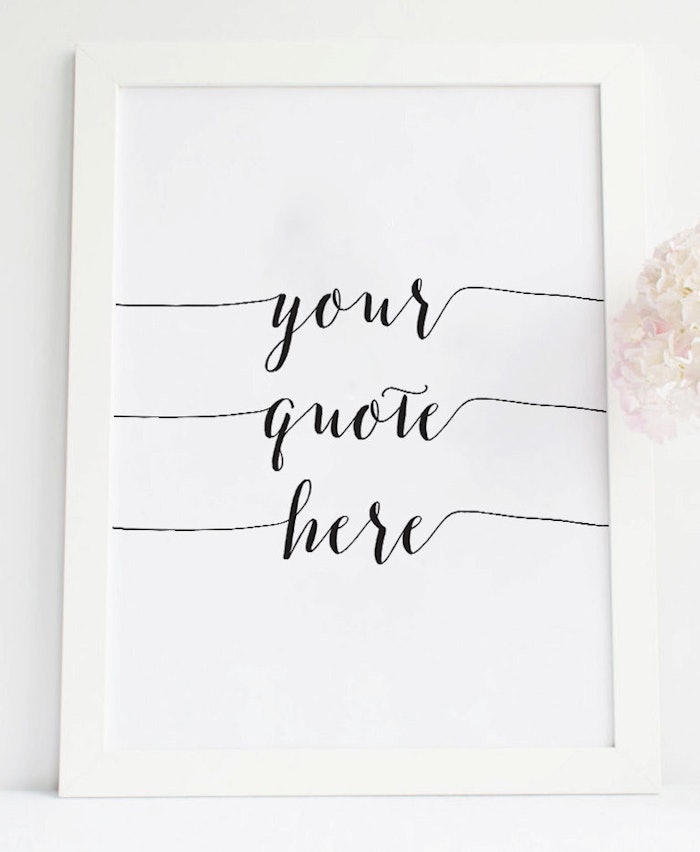 your
quote
here